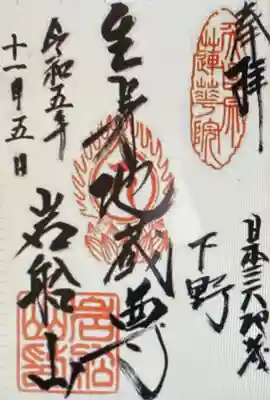 奉拝
日本三大地蔵
下野
生身地蔵尊
岩船山
令和五年
十一月五日
蓮華院